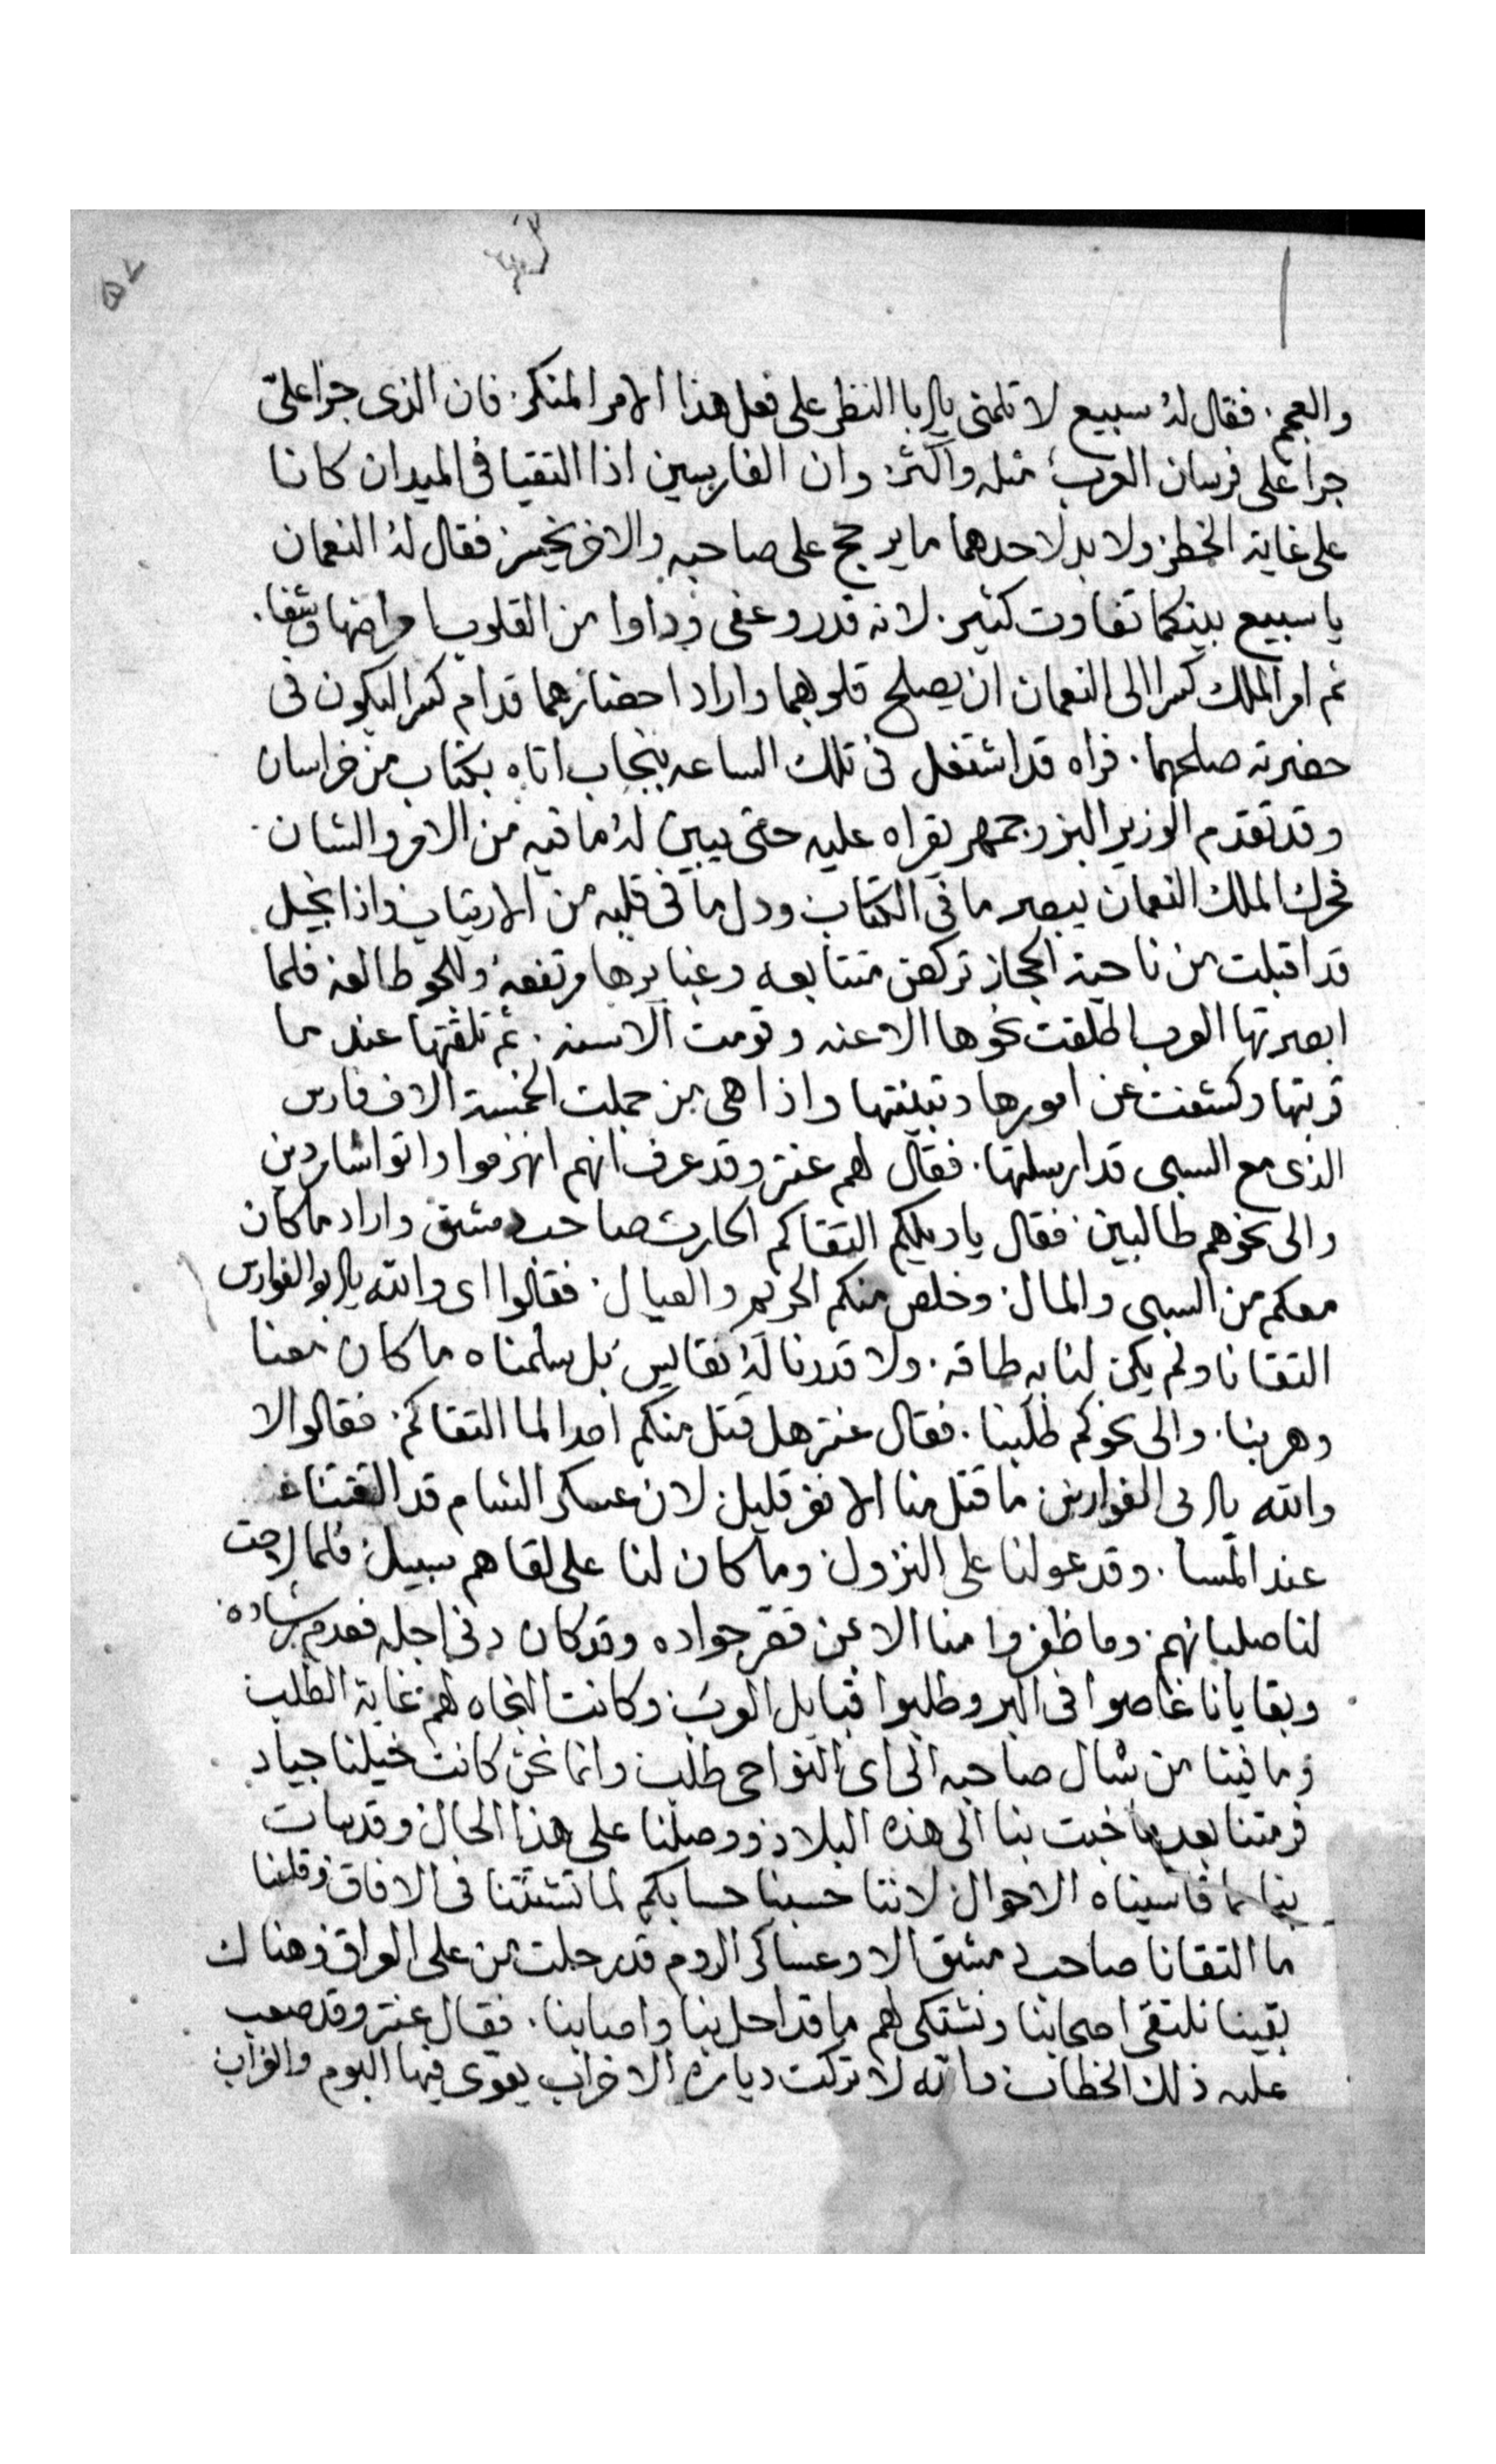 والعجم. فقال له سبيع لا تلمنى يابا النظر على فعل هذا الامر المنكر. فان الذى جرا علىّ
جرا على فرسان العرب مثله واكثر. وان الفارسين اذا التقيا فى الميدان كانا
على غاية الخطر ولا بد لاحدهما ما يرجح على صاحبه والاخر يخسر فقال له النعمان
يا سبيع بينكما تفاوت كثير. لانه قدر وعفى وداوا من القلوب امراضها وشفا.
ثم امر الملك كسرا الى النعمان ان يصلح قلوبهما واراد احضارهما قدام كسرا ليكون فى
حضرته صلحهما. فراه قد اشتغل فى تلك الساعه بنجاب اتاه بكتاب من خراسان
وقد تقدم الوزير البزرجمهر يقراه عليه حتى يبين له ما فيه من الامر والشان.
فحرك الملك النعمان يبصر ما فى الكتاب ودل ما فى قلبه من الارتياب واذا بخيل
قد اقبلت من ناحية الحجاز تركض متتابعه وغبايرها مرتفعه وللجو طالعه فلما
ابصرتها العرب اطلقت نحوها الاعنه وقومت الاسنه. ثم تلقتها عند ما
قربتها وكشفت عن امورها وتبينتها واذا هى من جملت الخمسة الاف فارس
الذى مع السبى قد ارسلتها. فقال لهم عنتر وقد عرف انهم انهزموا واتوا شاردين
والى نحوهم طالبين. فقال يا ويلكم التقاكم الحارث صاحب دمشق واراد ما كان
معكم من السبى والمال. وخلص منكم الحريم والعيال. فقالوا اى والله يابو الفوارس
التقانا ولم يكن لنا به طاقه. ولا قدرنا له نقايس بل سلمناه ما كان معنا
وهربنا. والى نحوكم طلبنا. فقال عنتر هل قتل منكم احدا لما التقاكم. فقالوا لا
والله يابى الفوارس ما قتل منا الا نفر قليل لان عسكر الشام قد التقتنا
عند المسا. وقد عولنا على النزول وما كان لنا على لقاهم سبيل فلما لاحت
لنا صلبانهم. وما ظفروا منا الا من قصر جواده وقد كان دنى اجله فعدم رشاده.
وبقايانا غاصوا فى البر وطلبوا قبايل العرب وكانت النجاه لهم غاية الطلب
وما فينا من سال صاحبه الى اى النواحى طلب وانما نحن كانت خيلنا جياد
فرمتنا بعد ما خبت بنا الى هذه البلاد ووصلنا على هذا الحال وقد سات
بنا مما قاسيناه الاحوال لاننا حسبنا حسابكم لما تشتتنا فى الافاق وقلنا
ما التقانا صاحب دمشق الا وعساكر الروم قد رحلت من على العراق وهناك
بقينا نلتقى اصحابنا ونشتكى لهم ما قد احل بنا واصابنا. فقال عنتر وقد صعب
عليه ذلك الخطاب والله لا تركت دياره الا خراب يعوى فيها البوم والغراب